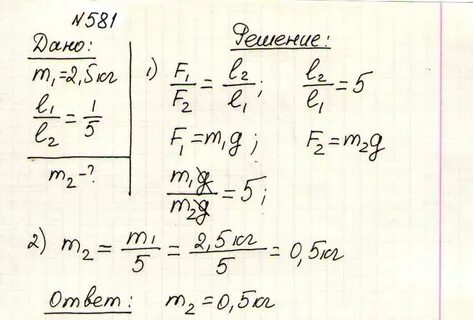 №581
Дано:
m₁=2,5кг
l₁/l₂ = 1/5
m₂-?
Решение:
1) F₁/F₂ = l₂/l₁; l₂/l₁ = 5
F₁=m₁g; F₂=m₂g
m₁g/m₂g = 5;
2) m₂ = m₁/5 = 2,5кг/5 = 0,5кг
Ответ: m₂=0,5кг